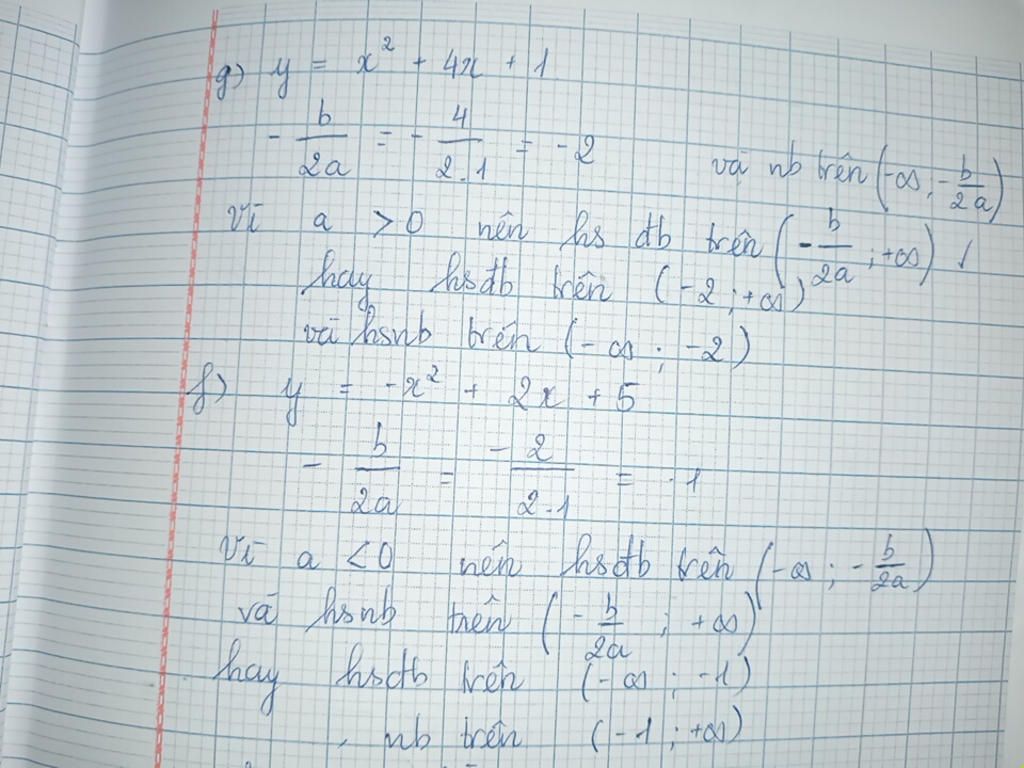 g) y = x² + 4x + 1
- b/2a = - 4/2.1 = -2
và nb trên (-∞; -b/2a)
Vì a > 0 nên hs đb trên (-b/2a; +∞)
hay hsđb trên (-2; +∞)
và hsnb trên (-∞; -2)
f) y = -x² + 2x + 5
- b/2a = -2/2.1 = -1
Vì a < 0 nên hsđb trên (-∞; -b/2a)
và hsnb trên (-b/2a; +∞)
hay hsđb trên (-∞; -1)
, nb trên (-1; +∞)